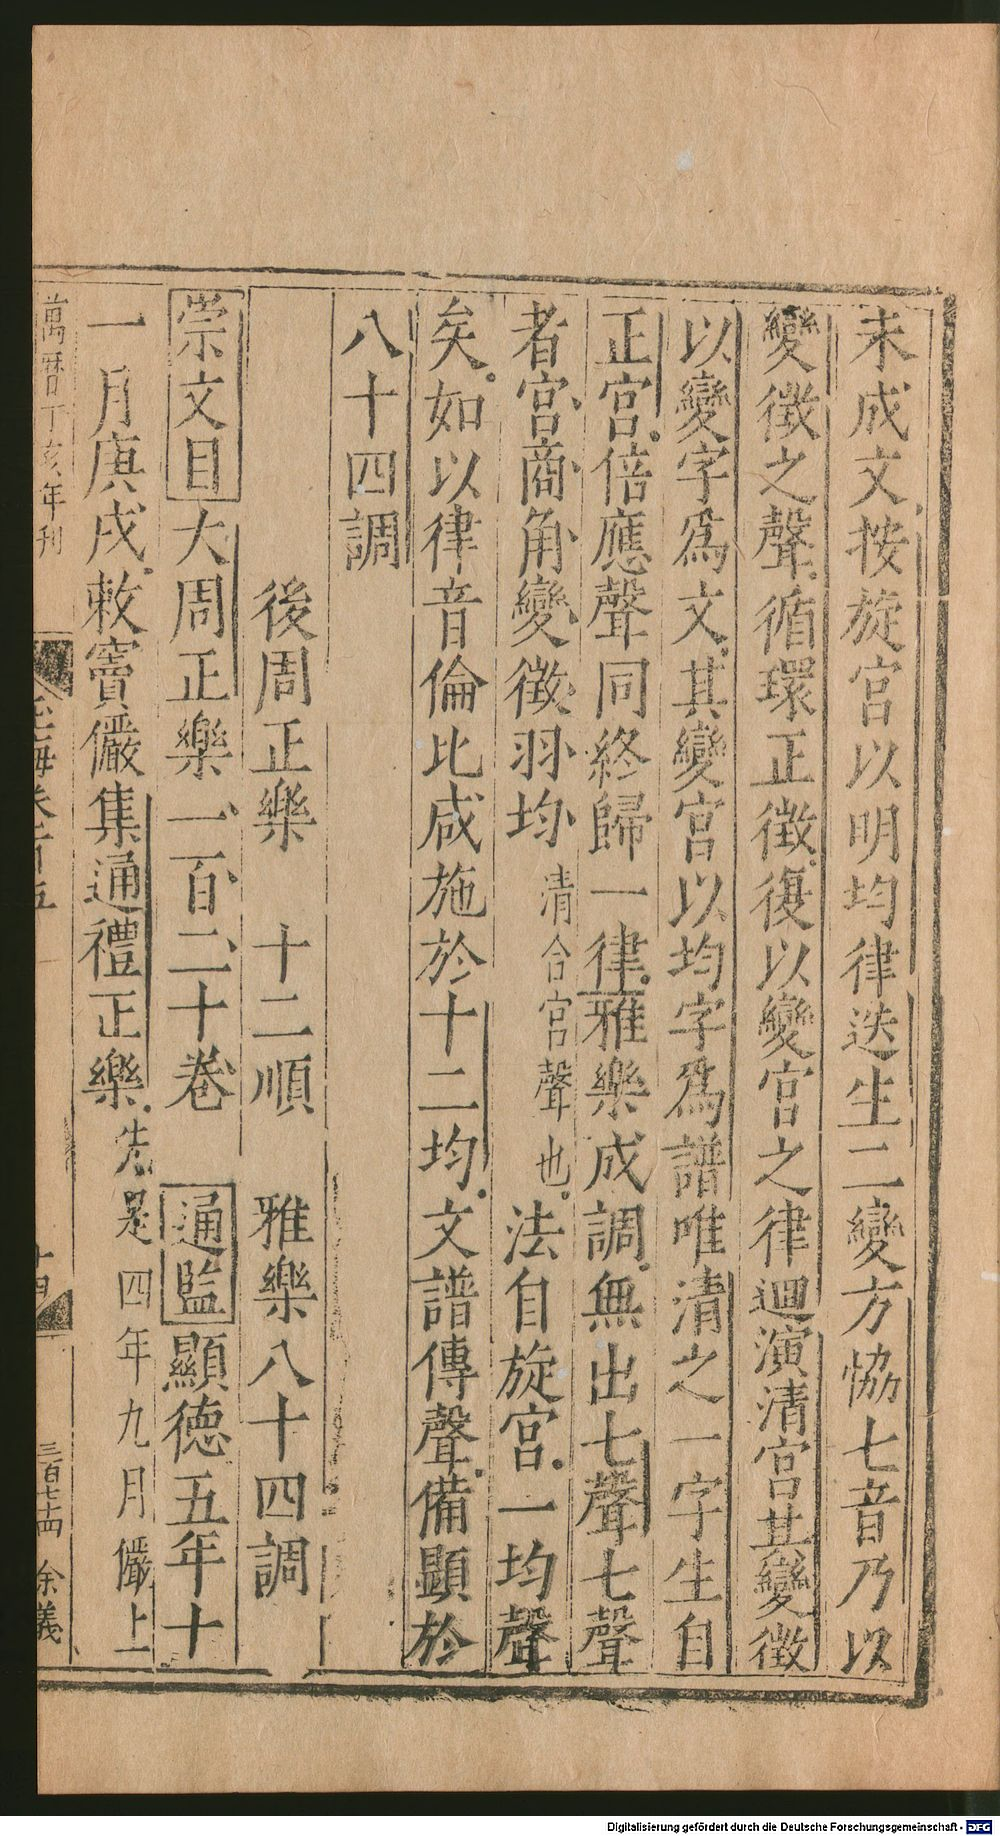 未成文按旋宮以明均律迭生二變方協七音乃以
變徵之聲循環正徵復以變宮之律迴演清宮其變徵
以變字爲文其變宮以均字爲譜唯清之一字生自
正宮倍應聲同終歸一律雅樂成調無出七聲七聲
者宮商角變徵羽均清合宮聲也法自旋宮一均聲
矣如以律音倫比咸施於十二均文譜傳聲備顯於
八十四調
後周正樂 十二順 雅樂八十四調
崇文目大周正樂一百二十卷 通監顯德五年十
一月庚戌敕竇儼集通禮正樂先是四年九月儼上
萬曆丁亥年刊
玉海卷一百五
十四
三百七十四 余義
Digitalisierung gefördert durch die Deutsche Forschungsgemeinschaft - DFG